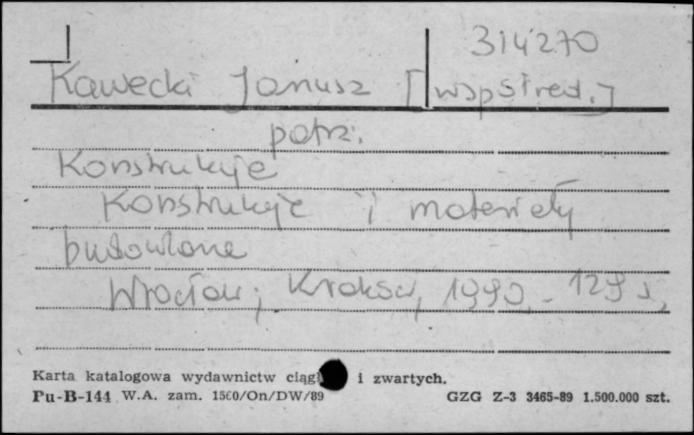 314270
Kawecki Janusz [współred.]
patrz:
Konstrukcje
Konstrukcje i materiały
budowlane
Wrocław; Kraków, 1990. - 129 s.
Karta katalogowa wydawnictw ciągł i zwartych.
Pu-B-144 W.A. zam. 1560/On/DW/89 GZG Z-3 3465-89 1.500.000 szt.